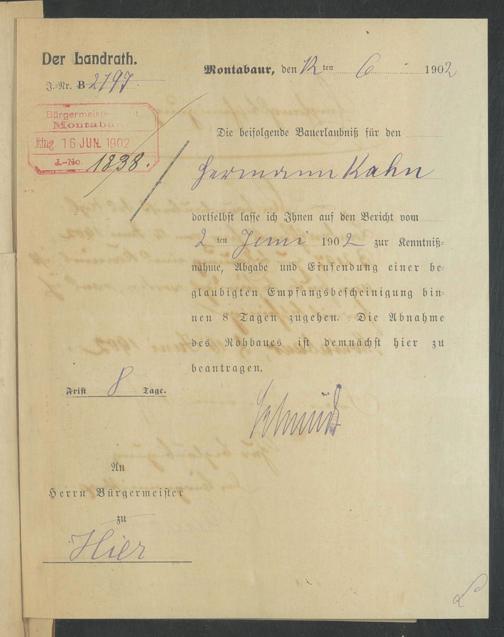 Der Landrath.
J.-Nr. B 2797.
Montabaur, den 12 ten 6 1902
Bürgermeister
Montabaur
Eing. 16 JUN. 1902
J.-No. 1838.
Die beifolgende Bauerlaubniß für den
Hermann Kahn
dortselbst lasse ich Ihnen auf den Bericht vom
2 ten Juni 1902 zur Kenntniß-
nahme, Abgabe und Einsendung einer be-
glaubigten Empfangsbescheinigung bin-
nen 8 Tagen zugehen. Die Abnahme
des Rohbaues ist demnächst hier zu
beantragen.
Frist 8 Tage.
Schmidt
An
Herrn Bürgermeister
zu
Hier